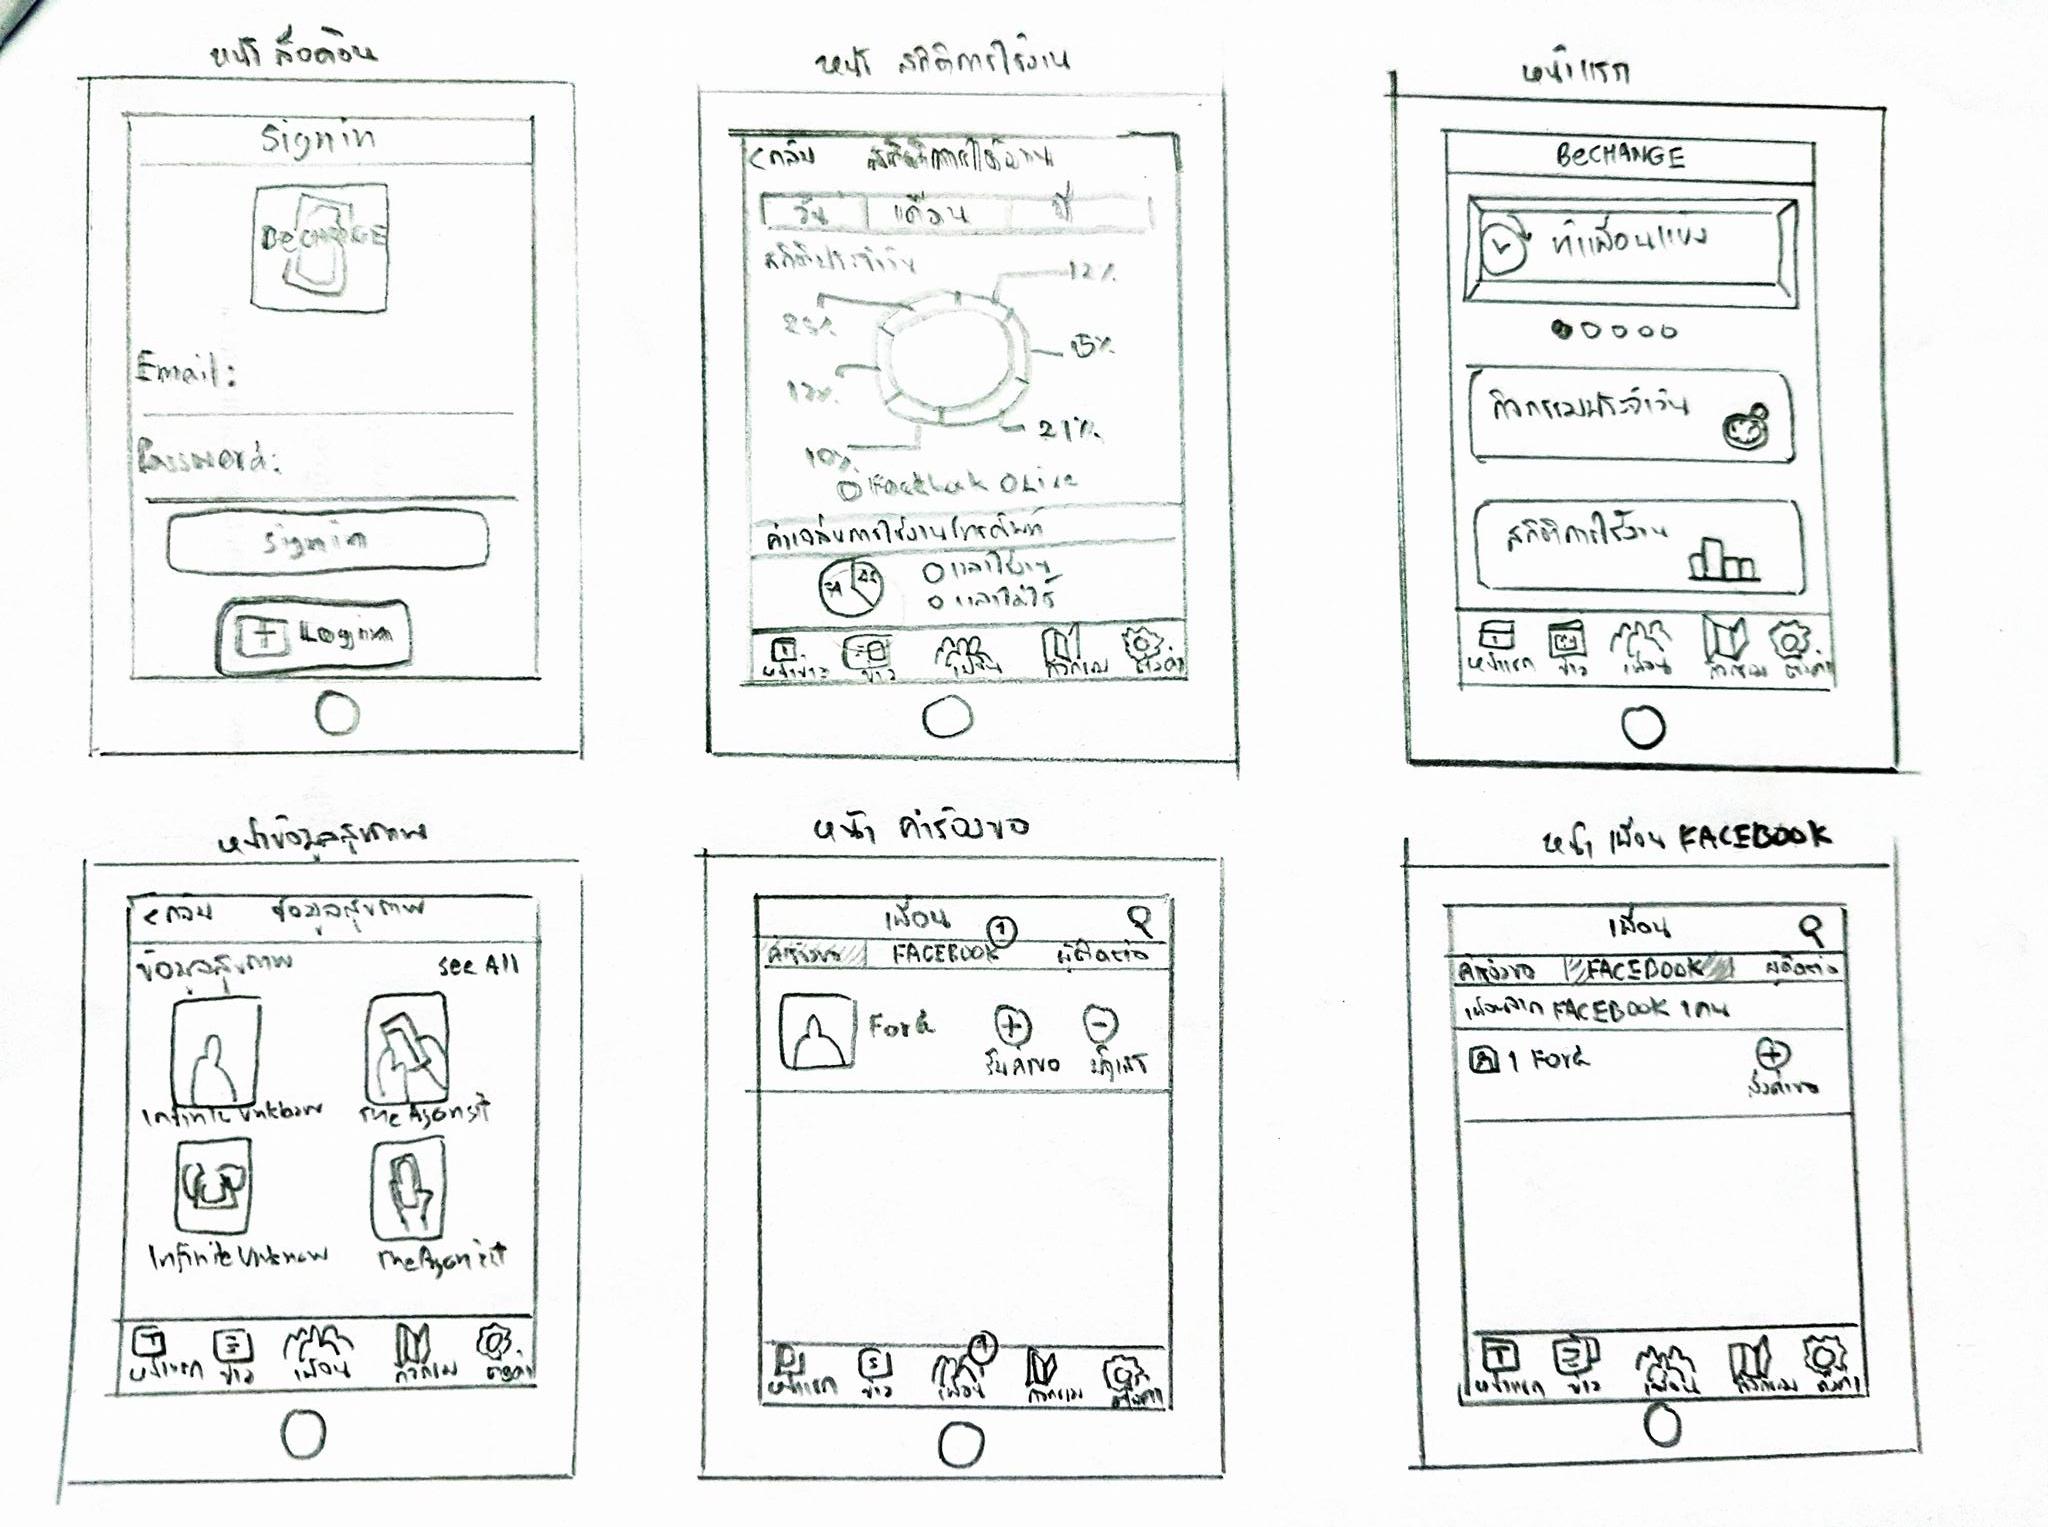 หน้า ล็อคอิน
Signin
BeCHANGE
Email:
Password:
Signin
Login
หน้า สถิติการใช้งาน
< กลับ สถิติการใช้งาน
วัน เดือน ปี
สถิติประจำวัน
12%
25%
15%
12%
21%
10%
Facebook Line
ค่าเฉลี่ยการใช้งานโทรศัพท์
เวลาใช้งาน
เวลาไม่ใช้
ข่าว เพื่อน กิจกรรม ตั้งค่า
หน้าแรก
BeCHANGE
กิจกรรมประจำวัน
สถิติการใช้งาน
หน้าแรก ข่าว เพื่อน กิจกรรม ตั้งค่า
หน้าข้อมูลสุขภาพ
< กลับ ข้อมูลสุขภาพ
ข้อมูลสุขภาพ See All
Infinite The Agonist
Infinite Unknow The Agonist
หน้าแรก ข่าว เพื่อน กิจกรรม ตั้งค่า
หน้า คำร้องขอ
เพื่อน
1
คำร้องขอ FACEBOOK ผู้ติดต่อ
Ford
รับคำขอ ปฏิเสธ
1
หน้าแรก ข่าว เพื่อน กิจกรรม ตั้งค่า
หน้า เพื่อน FACEBOOK
เพื่อน
คำร้องขอ FACEBOOK ผู้ติดต่อ
เพื่อนจาก FACEBOOK 1 คน
1 Ford
ส่งคำขอ
หน้าแรก ข่าว เพื่อน กิจกรรม ตั้งค่า